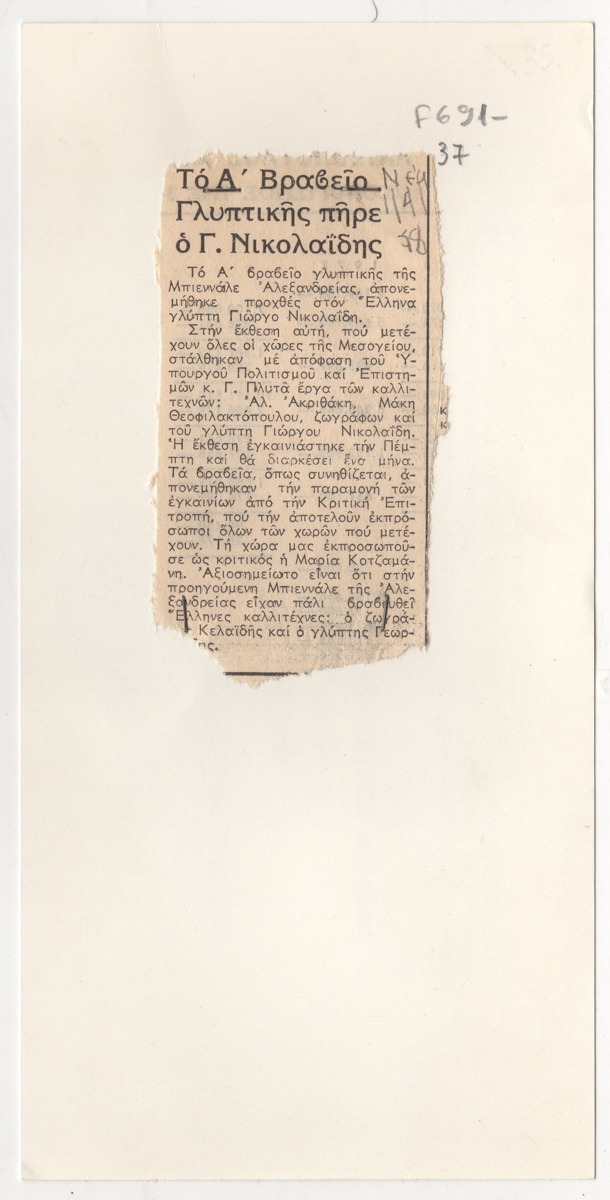 F691-
37
Τό Α΄ Βραβεῖο
Γλυπτικῆς πῆρε
ὁ Γ. Νικολαΐδης
Τό Α΄ βραβεῖο γλυπτικῆς τῆς
Μπιεννάλε Ἀλεξανδρείας, ἀπονε-
μήθηκε προχθές στόν Ἕλληνα
γλύπτη Γιῶργο Νικολαΐδη.
Στήν ἔκθεση αὐτή, πού μετέ-
χουν ὅλες οἱ χῶρες τῆς Μεσογείου,
στάλθηκαν μέ ἀπόφαση τοῦ Ὑ-
πουργοῦ Πολιτισμοῦ καί Ἐπιστη-
μῶν κ. Γ. Πλυτᾶ ἔργα τῶν καλλι-
τεχνῶν: Ἀλ. Ἀκριθάκη, Μάκη
Θεοφιλακτόπουλου, ζωγράφων καί
τοῦ γλύπτη Γιώργου Νικολαΐδη.
Ἡ ἔκθεση ἐγκαινιάστηκε τήν Πέμ-
πτη καί θά διαρκέσει ἕνα μήνα.
Τά βραβεῖα, ὅπως συνηθίζεται, ἀ-
πονεμήθηκαν τήν παραμονή τῶν
ἐγκαινίων ἀπό τήν Κριτική Ἐπι-
τροπή, πού τήν ἀποτελοῦν ἐκπρό-
σωποι ὅλων τῶν χωρῶν πού μετέ-
χουν. Τή χώρα μας ἐκπροσωποῦ-
σε ὡς κριτικός ἡ Μαρία Κοτζαμά-
νη. Ἀξιοσημείωτο εἶναι ὅτι στήν
προηγούμενη Μπιεννάλε τῆς Ἀλε-
ξανδρείας εἶχαν πάλι βραβευθεῖ
Ἕλληνες καλλιτέχνες: ὁ ζωγρά-
Κελαϊδής καί ὁ γλύπτης Γεωρ-
ης.